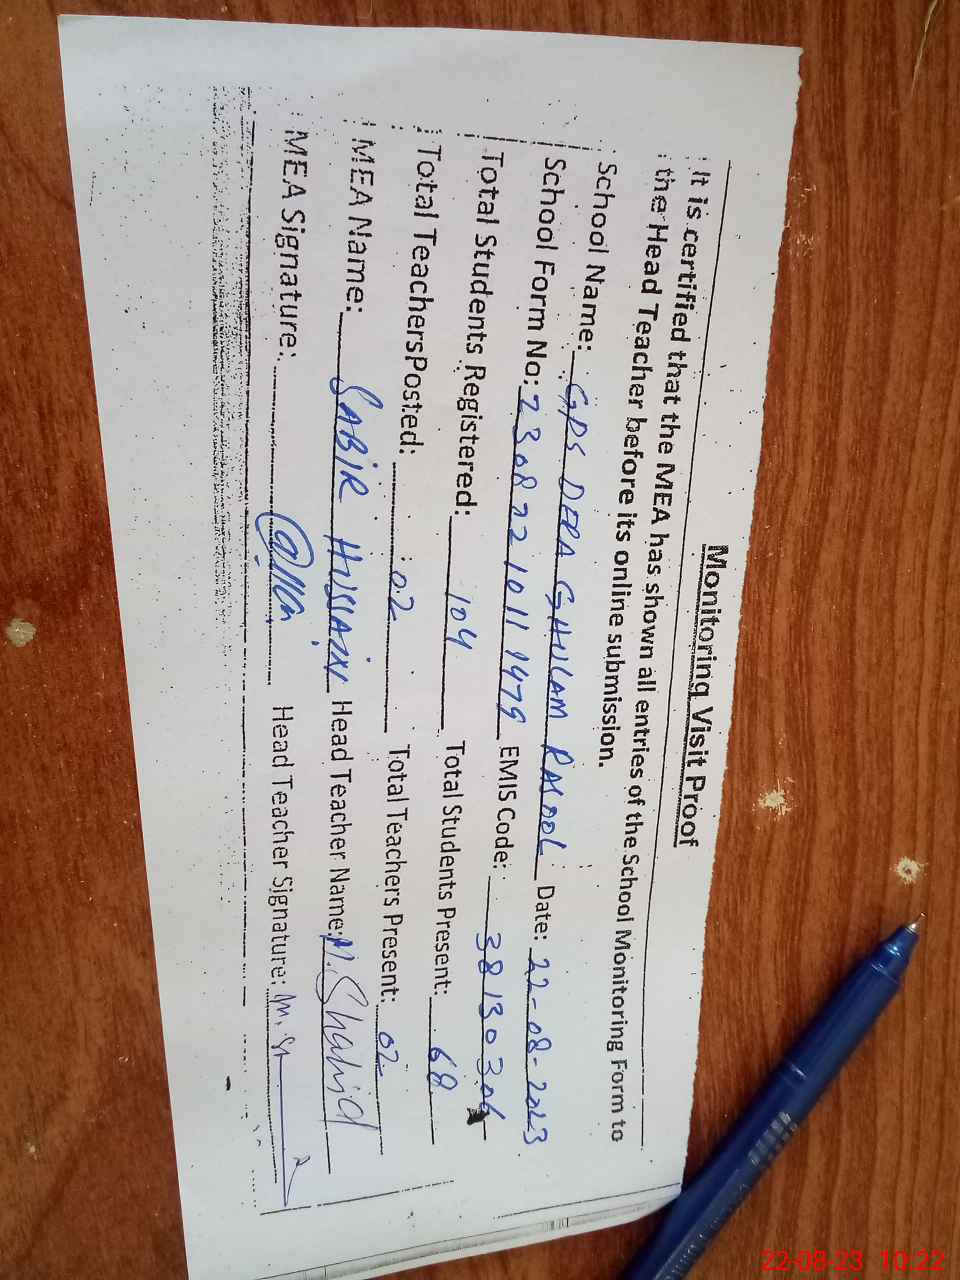 Monitoring Visit Proof
It is certified that the MEA has shown all entries of the School Monitoring Form to
the Head Teacher before its online submission.
School Name: GPS DERA GHULAM RASOOL Date: 22-08-2023
School Form No: 23082210111979 EMIS Code: 38130306
Total Students Registered: 104 Total Students Present: 68
Total TeachersPosted: 02 Total Teachers Present: 02
MEA Name: SABIR HUSSAIN Head Teacher Name: M. Shahid
MEA Signature: Head Teacher Signature:
22-08-23 10:22